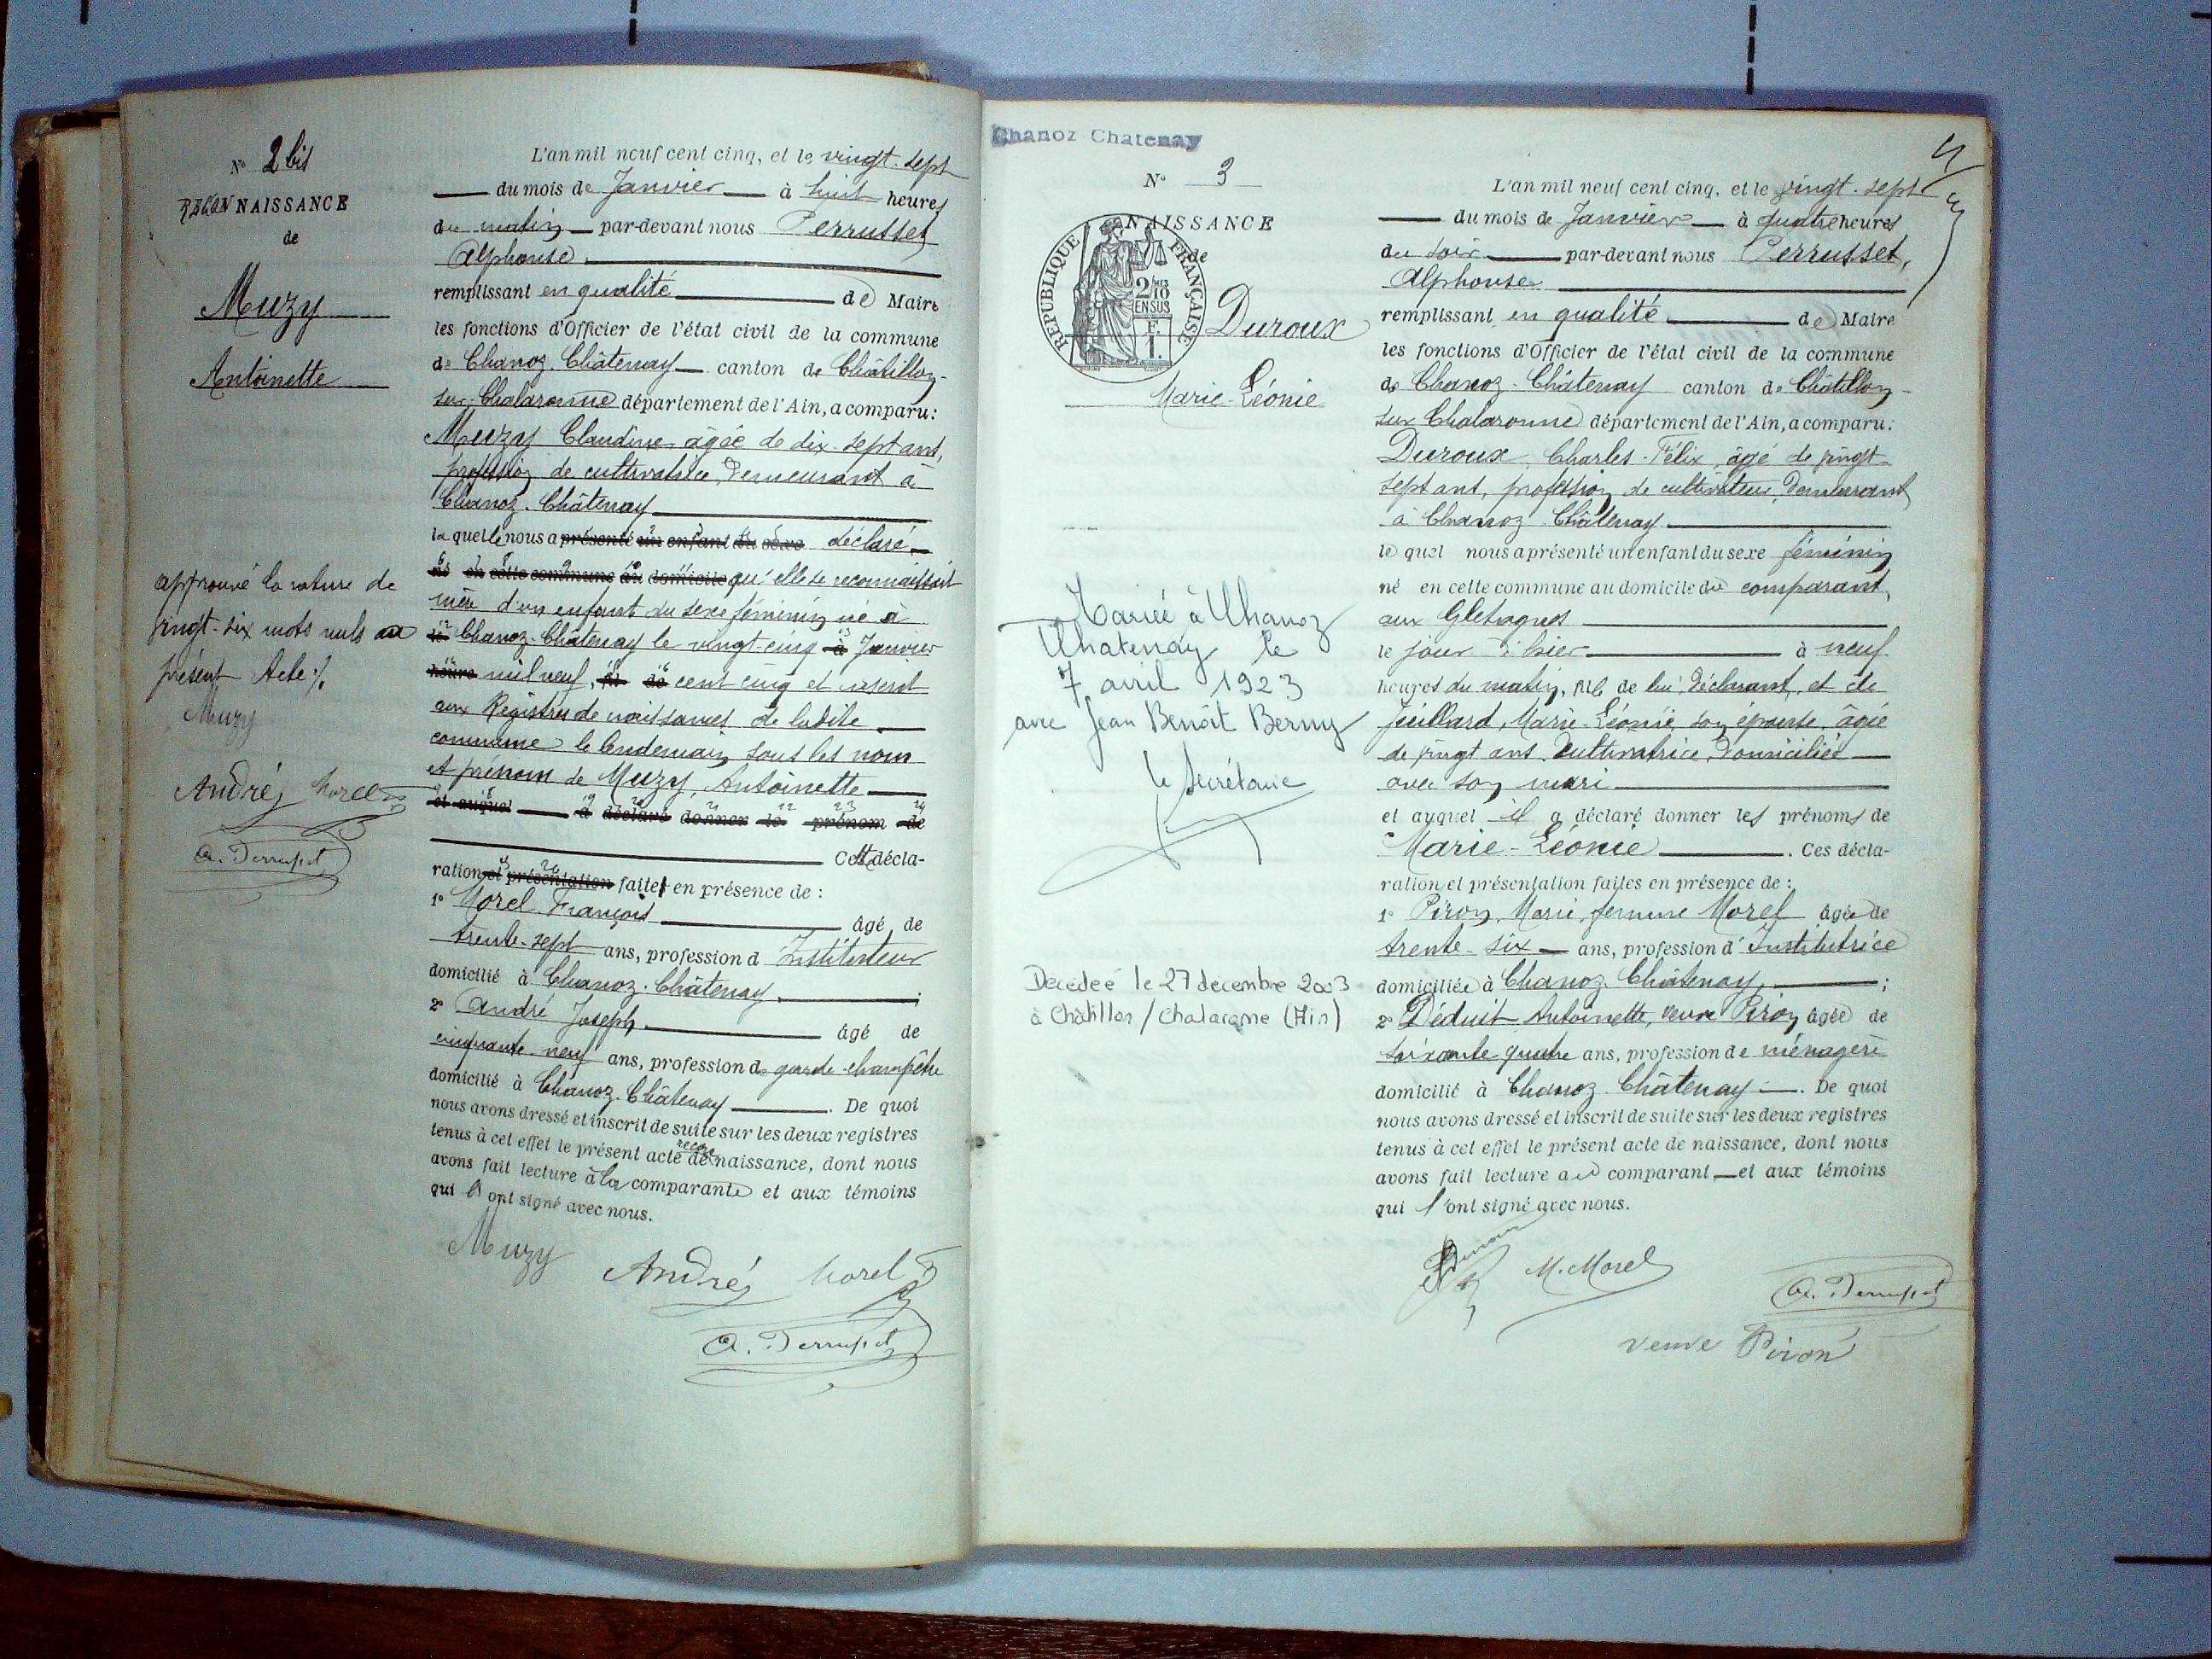 N° 2 bis
RECONNAISSANCE
de
Muzy
Antoinette
approuvé la rature de
vingt-six mots nuls au
présent Acte ./.
Muzy
André Morel
A. Perrusset
L'an mil neuf cent cinq, et le vingt-sept
du mois de Janvier à huit heures
du matin par-devant nous Perrusset
Alphonse
remplissant en qualité de Maire
les fonctions d'Officier de l'état civil de la commune
de Chanoz-Châtenay canton de Châtillon-
sur-Chalaronne département de l'Ain, a comparu:
Muzy Claudine âgée de dix-sept ans,
profession de cultivatrice, demeurant à
Chanoz-Châtenay
laquelle nous a présenté un enfant du sexe déclaré
né en cette commune au domicile qu'elle se reconnaissait
mère d'un enfant du sexe féminin né à
le Chanoz-Châtenay le vingt-cinq à Janvier
heure mil neuf, fil de cent cinq et inscrit
aux Registres de naissances de ladite
commune le lendemain sous les nom
et prénom de Muzy, Antoinette
et auquel a déclaré donner le prénom de
Cette décla-
ration et présentation faite en présence de :
1° Morel François âgé de
trente-sept ans, profession d'Instituteur
domicilié à Chanoz-Châtenay ;
2° André Joseph âgé de
cinquante-neuf ans, profession de garde-champêtre
domicilié à Chanoz-Châtenay . De quoi
nous avons dressé et inscrit de suite sur les deux registres
tenus à cet effet le présent acte de reconnaissance, dont nous
avons fait lecture à la comparante et aux témoins
qui l'ont signé avec nous.
Muzy André Morel
A. Perrusset
Chanoz Chatenay
N° 3
NAISSANCE
de
REPUBLIQUE FRANÇAISE
2/10
EN SUS
Duroux
Marie-Léonie
Mariée à Chanoz
Chatenay le
7 avril 1923
avec Jean Benoît Berny
le Secrétaire
Décédée le 27 decembre 2003
à Châtillon / Chalaronne (Ain)
L'an mil neuf cent cinq, et le vingt-sept
du mois de Janvier à quatre heures
du soir par-devant nous Perrusset,
Alphonse
remplissant en qualité de Maire
les fonctions d'Officier de l'état civil de la commune
de Chanoz-Châtenay canton de Châtillon-
sur Chalaronne département de l'Ain, a comparu:
Duroux, Charles-Félix, âgé de vingt-
sept ans, profession de cultivateur, demeurant
à Chanoz-Châtenay
lequel nous a présenté un enfant du sexe féminin
né en cette commune au domicile du comparant,
aux
le jour d'hier à neuf
heures du matin, fille de lui déclarant, et de
Juillard, Marie-Léonie son épouse, âgée
de vingt ans, cultivatrice, domiciliée
avec son mari
et auquel il a déclaré donner les prénoms de
Marie-Léonie . Ces décla-
ration et présentation faites en présence de :
1° Piron, Marie, femme Morel âgée de
trente-six ans, profession d'Institutrice
domiciliée à Chanoz-Châtenay ;
2° Déduit Antoinette, veuve Piron âgée de
soixante-quatre ans, profession de ménagère
domicilié à Chanoz-Châtenay . De quoi
nous avons dressé et inscrit de suite sur les deux registres
tenus à cet effet le présent acte de naissance, dont nous
avons fait lecture au comparant et aux témoins
qui l'ont signé avec nous.
Duroux M. Morel
A. Perrusset
veuve Piron